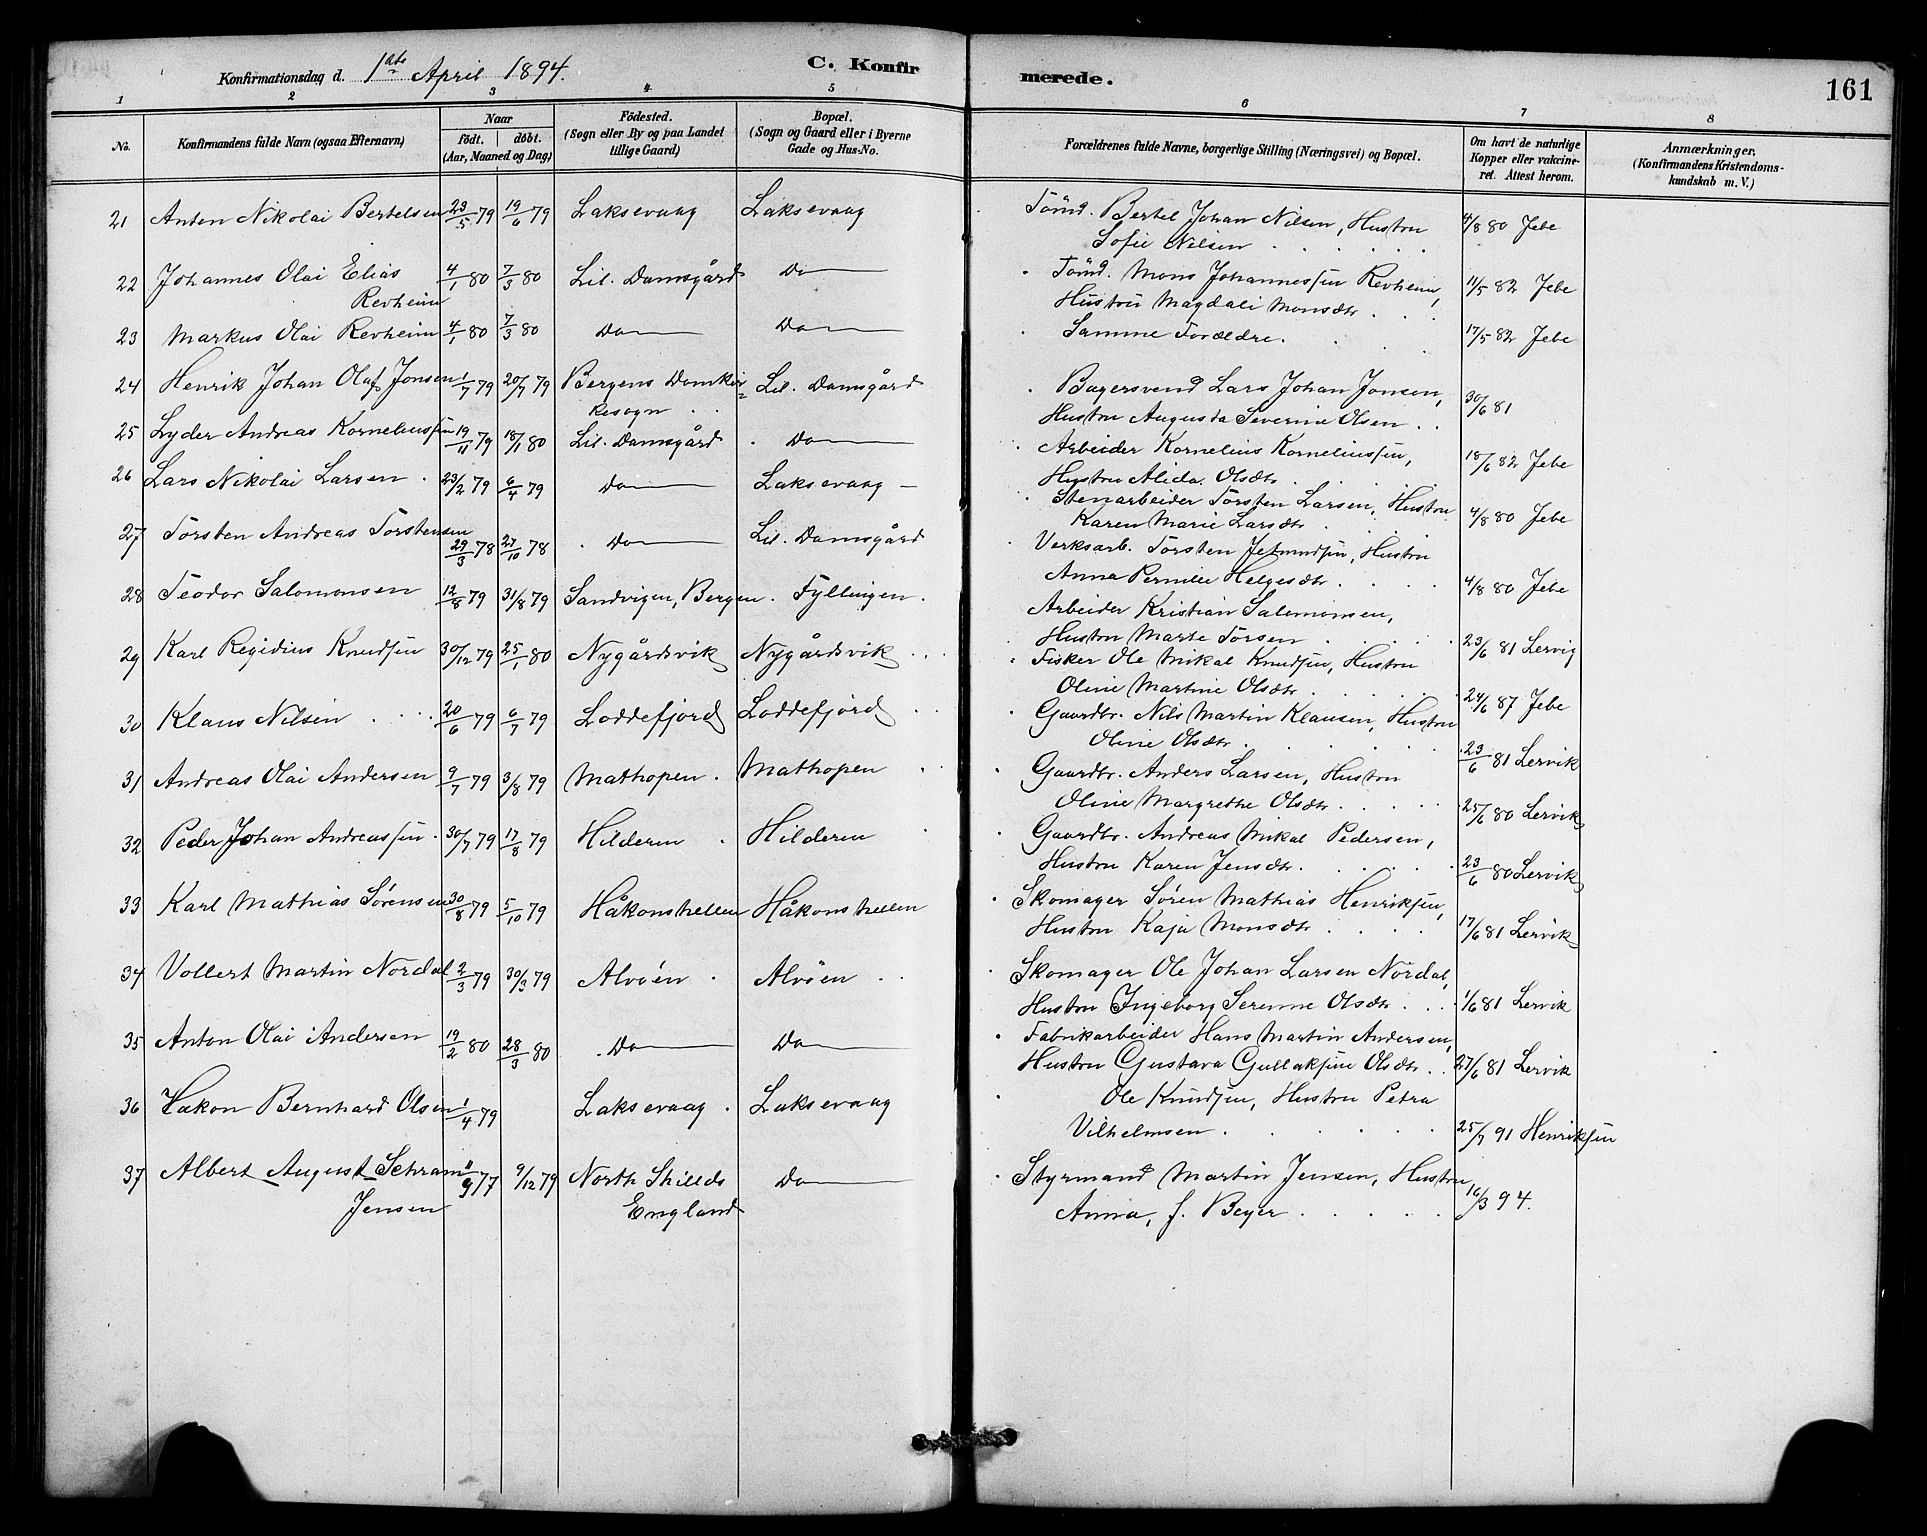 Konfirmationsdag d. 1ste April 1894.
C. Konfirmerede.
161
1 2 3 4 5 6 7 8
No.
Konfirmandens fulde Navn (ogsaa Efternavn)
Naar
födt. döbt.
(Aar, Maaned og Dag)
Födested.
(Sogn eller By og paa Landet
tillige Gaard)
Bopæl.
(Sogn og Gaard eller i Byerne
Gade og Hus-No.
Forældrenes fulde Navne, borgerlige Stilling (Næringsvei) og Bopæl.
Om havt de naturlige
Kopper eller vakcine-
ret. Attest herom.
Anmærkninger,
(Konfirmandens Kristendoms-
kundskab m. V.)
21 Anton Nikolai Bertelsen 23/5 79 19/6 79 Laksevaag Laksevaag Tömd. Bertel Johan Nilsen, Hustru 4/8 80 Jebe
Sofie Nilsen
22 Johannes Olai Elias 4/1 80 7/3 80 Lil. Damsgård Do Tömd. Mons Johannessen Revheim, 11/5 82 Jebe
Revheim Hustru Magdali Monsdtr.
23 Markus Olai Revheim 4/1 80 7/3 80 Do Do Samme Forældre. 17/5 82 Jebe
24 Henrik Johan Olaf Jonsen 1/7 79 20/7 79 Bergens Domkir= Lil. Damsgård Bagersvend Lars Johan Jonsen, 30/6 81
kesogn Hustru Augusta Severine Olsen
25 Lyder Andreas Korneliussen 19/11 79 18/1 80 Lil. Damsgård Do Arbeider Kornelius Korneliussen, 18/6 82 Jebe
Hustru Alida Olsdtr.
26 Lars Nikolai Larsen 23/2 79 6/4 79 Do Laksevaag Stenarbeider Torsten Larsen, Hustru 4/8 80 Jebe
Karen Marie Larsdtr
27 Torsten Andreas Torstensen 29/3 78 27/10 78 Do Lil. Damsgård Verksarb. Torsten Jetmundsen, Hustru
Anna Pernille Helgesdtr 4/8 80 Jebe
28 Teodor Salomonsen 12/8 79 31/8 79 Sandvigen, Bergen. Fyllingen. Arbeider Kristian Salomonsen,
Hustru Marte Torsen 23/6 81 Lervig
29 Karl Regidius Knudsen 30/12 79 25/1 80 Nygårdsvik Nygårdsvik Fisker Ole Mikal Knudsen, Hustru
Oline Martine Olsdtr 24/6 87 Jebe
30 Klaus Nilsen 20/6 79 6/7 79 Loddefjord Loddefjord Gaardbr. Nils Martin Klausen, Hustru
Oline Olsdtr. 23/6 81 Lervik
31 Andreas Olai Andersen 9/7 79 3/8 79 Mathopen. Mathopen Gaardbr. Anders Larsen, Hustru
Oline Margrethe Olsdtr 25/6 80 Lervik
32 Peder Johan Andreassen 30/7 79 17/8 79 Hilderen Hilderen Gaardbr. Andreas Mikal Pedersen,
Hustru Karen Jensdtr. 23/6 80 Lervik
33 Karl Mathias Sörensen 30/8 79 5/10 79 Håkonshellen Håkonshellen Skomager Sören Mathias Henriksen,
Hustru Kaja Monsdtr 17/6 81 Lervik
34 Vollert Martin Nordal 2/3 79 30/3 79 Alvöen Alvöen Skomager Ole Johan Larsen Nordal,
Hustru Ingeborg Serenne Olsdtr 1/6 81 Lervik
35 Anton Olai Andersen 19/2 80 28/3 80 Do Do Fabrikarbeider Hans Martin Andersen,
Hustru Gustava Gullaksine Olsdtr 27/6 81 Lervik
36 Hakon Bernhard Olsen 1/4 79 Laksevaag Laksevaag Ole Knudsen, Hustru Petra
Vilhelmsen 25/7 91 Henriksen
37 Albert August Schram 11/9 77 9/12 79 North Shields Do Styrmand Martin Jensen, Hustru
Jensen England Anna, f. Beyer 16/3 94.